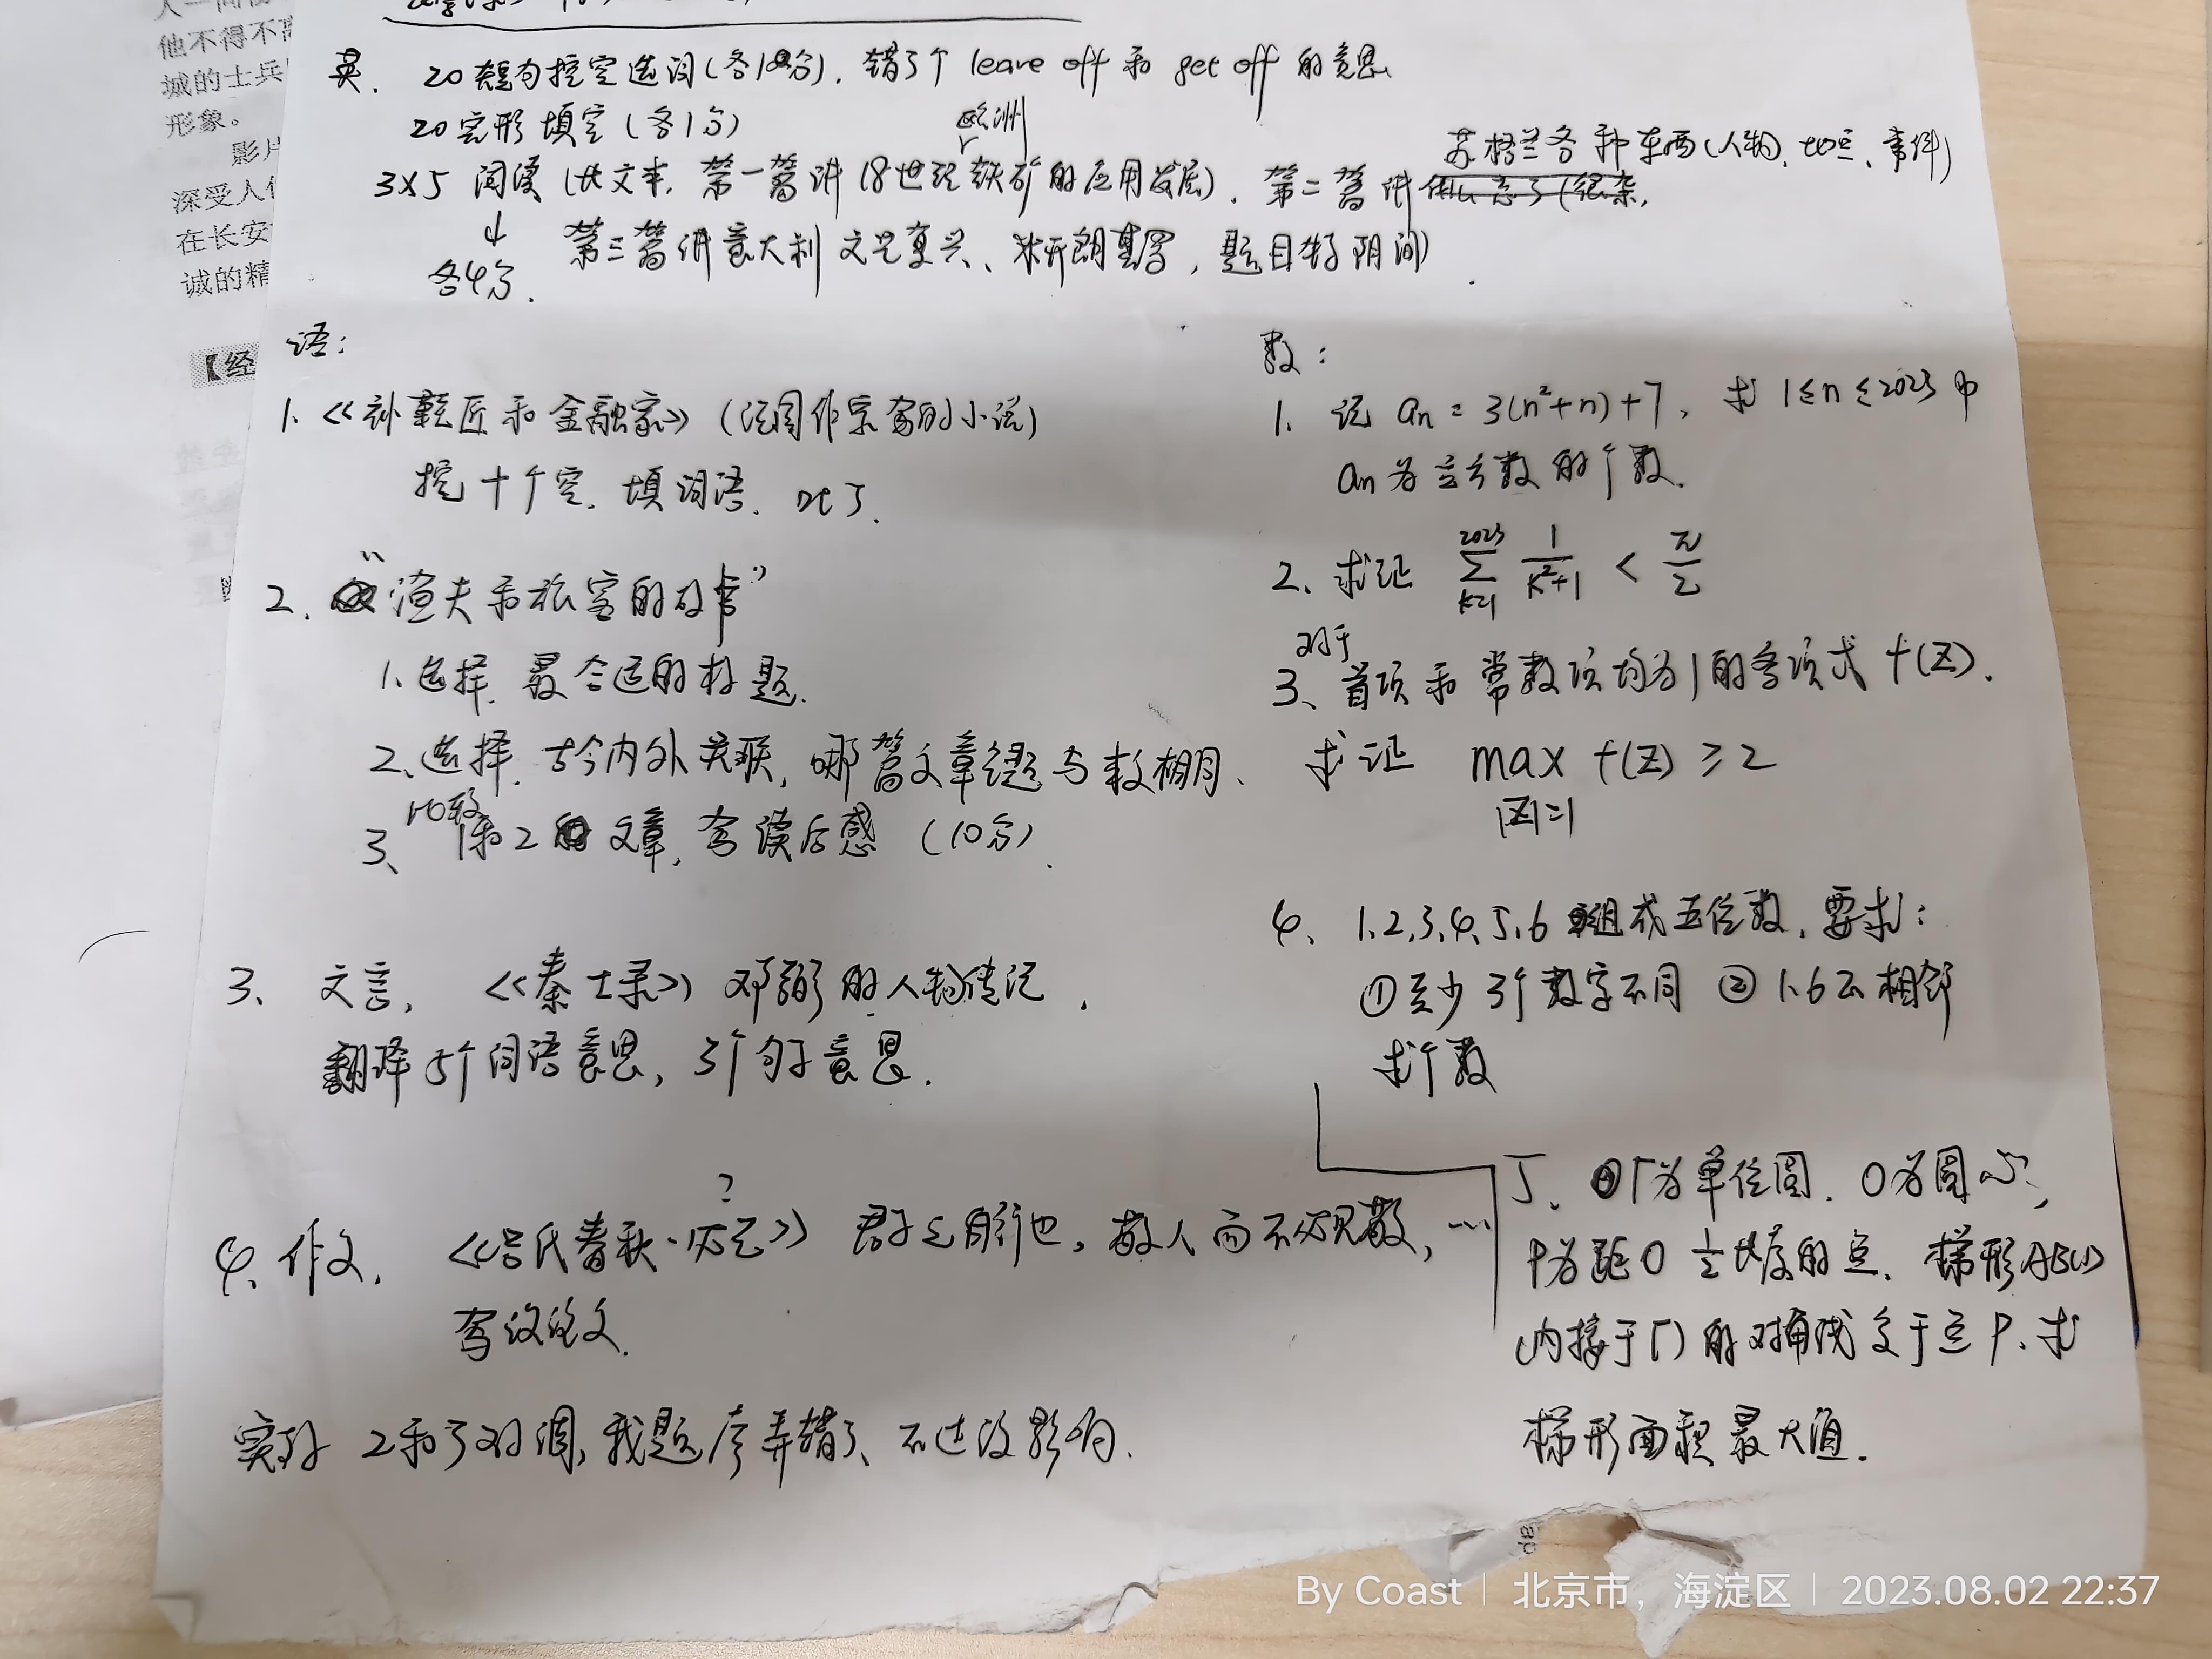 人
他不得不离
城的士兵
形象。
影片
深受人们
在长安
诚的精
【经
英. 20短句挖空选词(各1分). 错了个 leave off 和 get off 的意思
20完形填空(各1分)
欧洲
苏格兰各种东西(人物、地点、事件)
3×5 阅读 (长文本, 第一篇讲18世纪铁矿的应用发展). 第二篇讲什么忘了(很杂,
↓
各4分.
第三篇讲意大利文艺复兴、米开朗基罗, 题目特阴间)
语:
1. 《补鞋匠和金融家》 (法国作家写的小说)
挖十个空. 填词语. 吐了.
2. “渔夫和旅客的故事”
1. 选择. 最合适的标题.
2. 选择. 古今内外关联, 哪篇文章
3、比较 1和2 文章, 写读后感 (10分).
3、 文言, 《秦士录》 邓弼的人物传记.
翻译5个词语意思, 3个句子意思.
?
4. 作文. 《吕氏春秋· 》 君子之自行也, 敬人而不必见敬, …
写议论文.
实际 2和3对调, 我题序弄错了、不过没影响.
数:
1. 记 an = 3(n²+n)+7, 求 1≤n≤2023 中
an为立方数的个数.
2、求证 2023 Σ k=1 1/(k²+1) < π/2
对于
3、首项和常数项均为1的多项式 f(z).
求证 max f(z) ≥ 2
|z|=1
4、 1,2,3,4,5,6 组成五位数, 要求:
①至少3个数字不同 ②1,6不相邻
求个数
5、 Γ为单位圆. O为圆心,
P为距O 1/2长度的点. 梯形ABCD
(内接于Γ)的对角线交于点P. 求
梯形面积最大值.
By Coast | 北京市，海淀区 | 2023.08.02 22:37